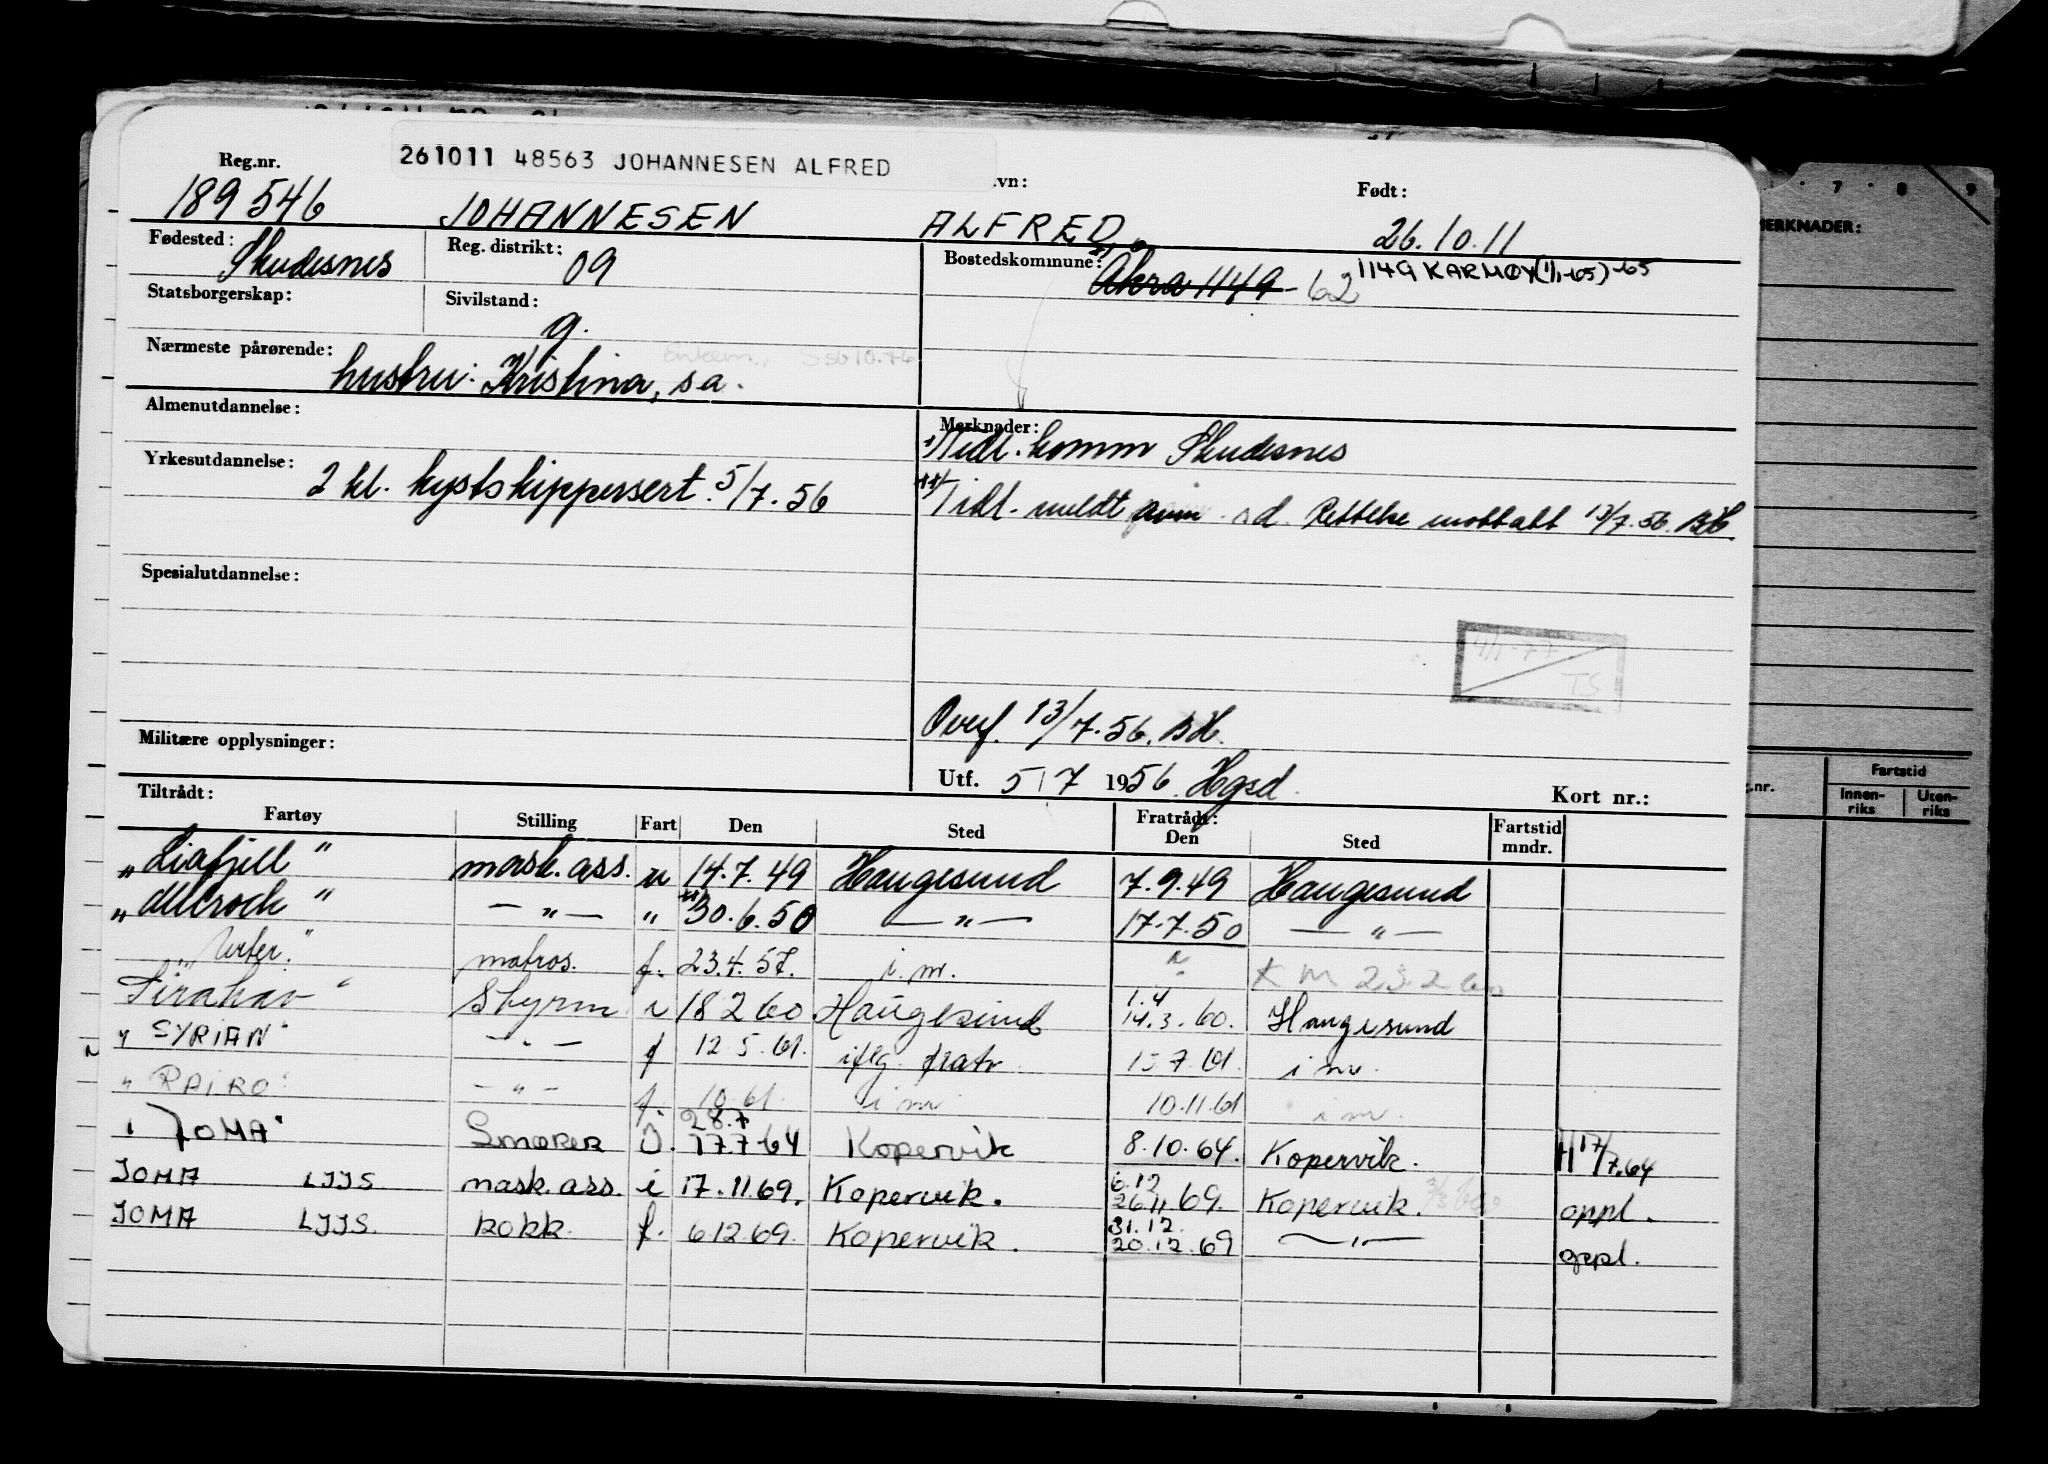 261011 48563 JOHANNESEN ALFRED
Reg.nr. .vn: Født:
189546 JOHANNESEN ALFRED 26.10.11
Fødested: Skudesnes Reg. distrikt: 09 Bostedskommune: Åkra 1149 - 62 1149 KARMØY (1/1-65) -65
Statsborgerskap: Sivilstand: g.
Nærmeste pårørende: hustru: Kristina, sa.
Almenutdannelse: Merknader:
Tidl. komm Skudesnes
Yrkesutdannelse: 2 kl. kystskippersert. 5/7.56
Tidl. meldt Rettelse mottatt 13/7.56. BH.
Spesialutdannelse:
4/1-77
TS
Overf. 13/7.56. BH.
Militære opplysninger:
Utf. 5/7 1956 Hgsd. Kort nr.:
Tiltrådt: Fratrådt:
Fartøy Stilling Fart Den Sted Den Sted Fartstid mndr.
"Liafjell" mask. ass. u 14.7.49 Haugesund 7.9.49 Haugesund
— " — " 30.6.50 — " — 17.7.50 — " —
matros. f. 23.4.57. i.m. " KM 23.2.60
Sirahav" Styrm i 18 2 60 Haugesund 1.4 14.3.60. Haugesund
" SYRIAN" — " — f 12.5.61. iflg. fratr 7 61 i m.
" RAIRO" — " — f. 10.61. i m 10.11.61 i m.
" JOMA" Smører I. 28.7 17.7 64 Kopervik 8.10.64. Kopervik. H 17/7.64
JOMA LJJS mask. ass. i 17.11.69. Kopervik. 6.12 26.11.69. Kopervik. oppl.
JOMA LJJS. kokk. f. 6.12.69. Kopervik. 31.12. 20.12.69 — " — oppl.
7 8 9
MERKNADER:
Fartstid
g.nr. Innen-riks Uten-riks